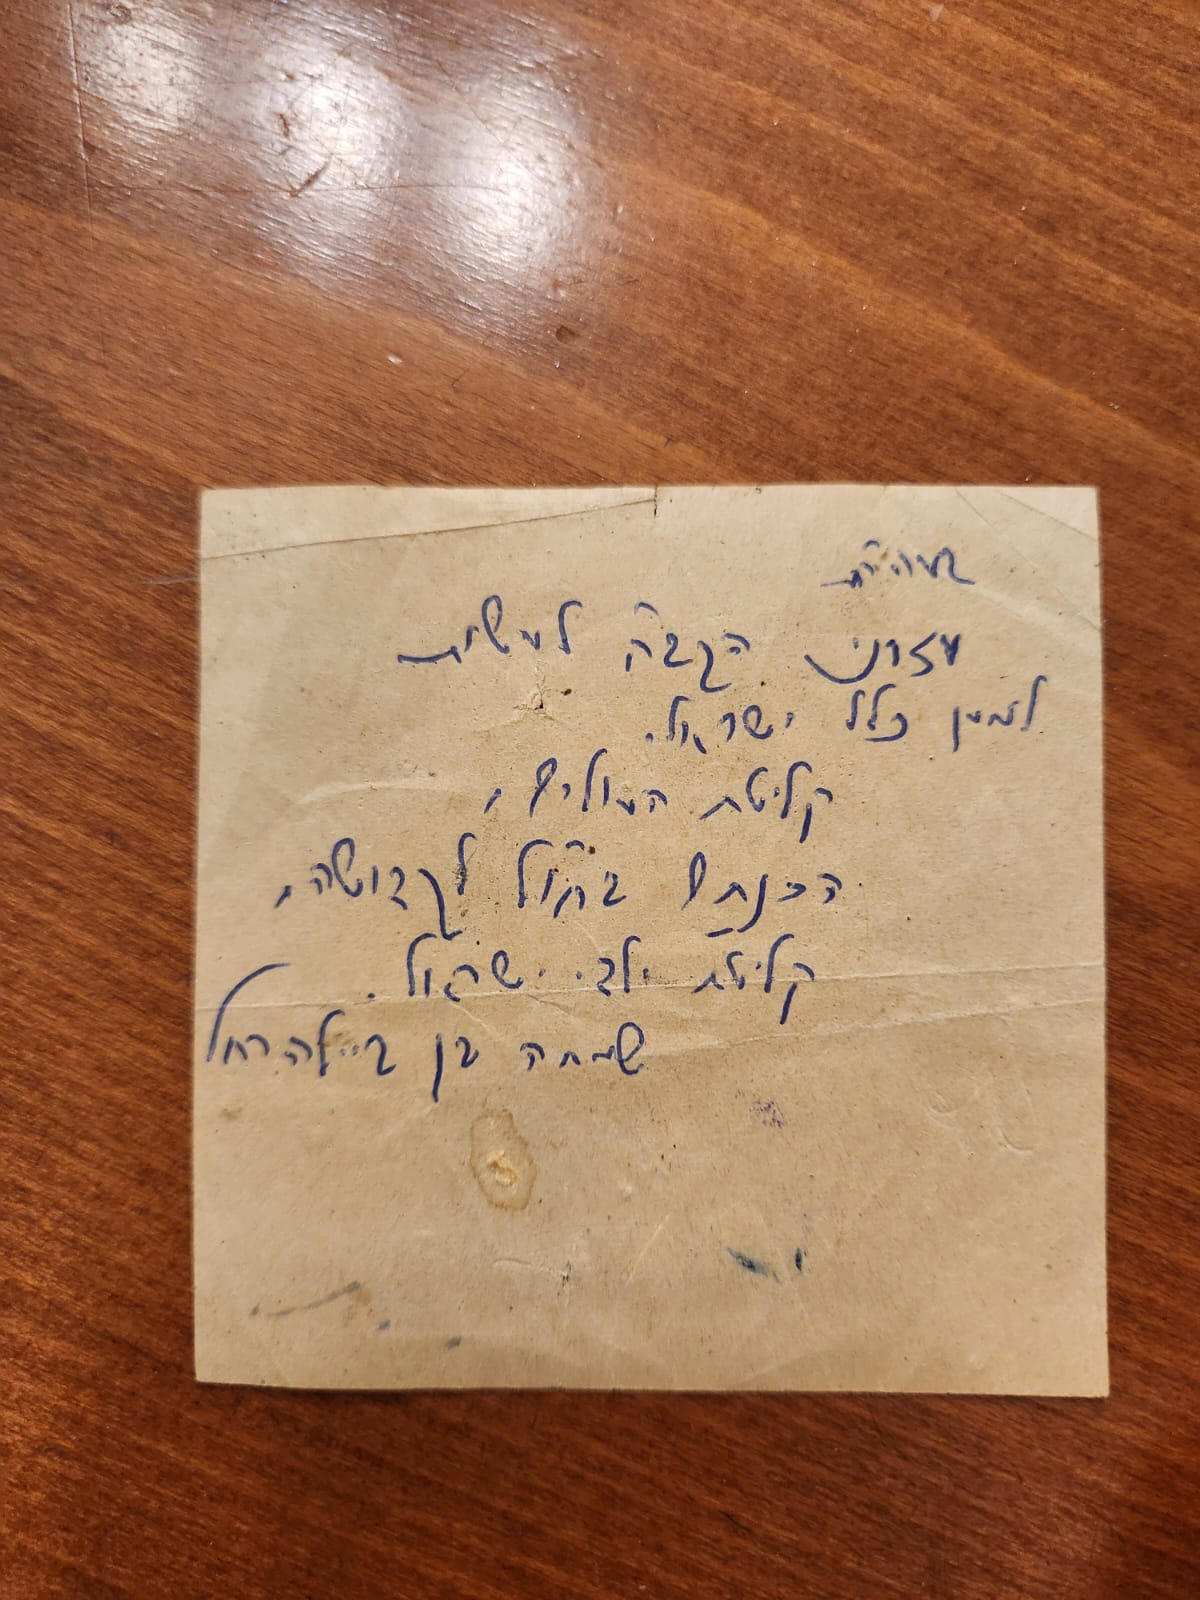 בעהי"ת
עזרני הקב"ה לעשות
למען כלל ישראל.
קליטת העולים,
הכנתם בחו"ל לקדושה,
קליטת ילדי ישראל.
שמחה בן ביילה רחל